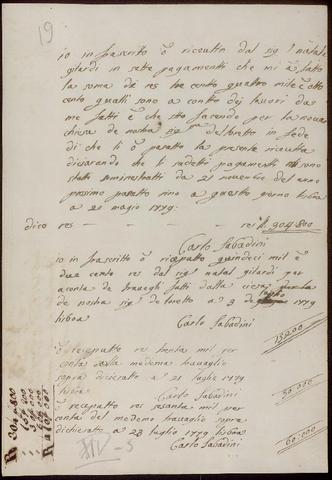 19
io infrascrito ò riceutto dal sig.r natale
gilardi in sette pagamentti che mi à fatto
la soma dà res tre cento quatro mile è otto
cento qualli sono a contto dei lavori da
me fatti è che sto facendo per la nova
chiesa de nostra sig.ra del loretto in fede
di che li ò fatto la presente riceutta
diciarando che li sudetti pagamenti
statti suministratti da 21 novembre del anno
prossimo pasatto sino a questo giorno lisboa
a 21 magio 1779
dico res rei R 304 800
Carlo Sabadini
io in frascritto ò riceputto quindeci mil è
due cento res dal sig.r natal gilardi per
a conta de travagli fatti dalla ciesa
de nostra sig.r de loretto a 3 luglio 1779
lisboa
Carlo Sabadini
15200
ò receputto res trenta mil per
conta della medema travaglio
sopra diciaratto a 21 luglio 1779
lisboa
Carlo Sabadini
30.000
ò receputto res sesanta mil per
conta del medemo travaglio sopra
dichiaratto a 23 luglio 1779 lisboa
Carlo Sabadini
60.000
XIV-5
R 304 800